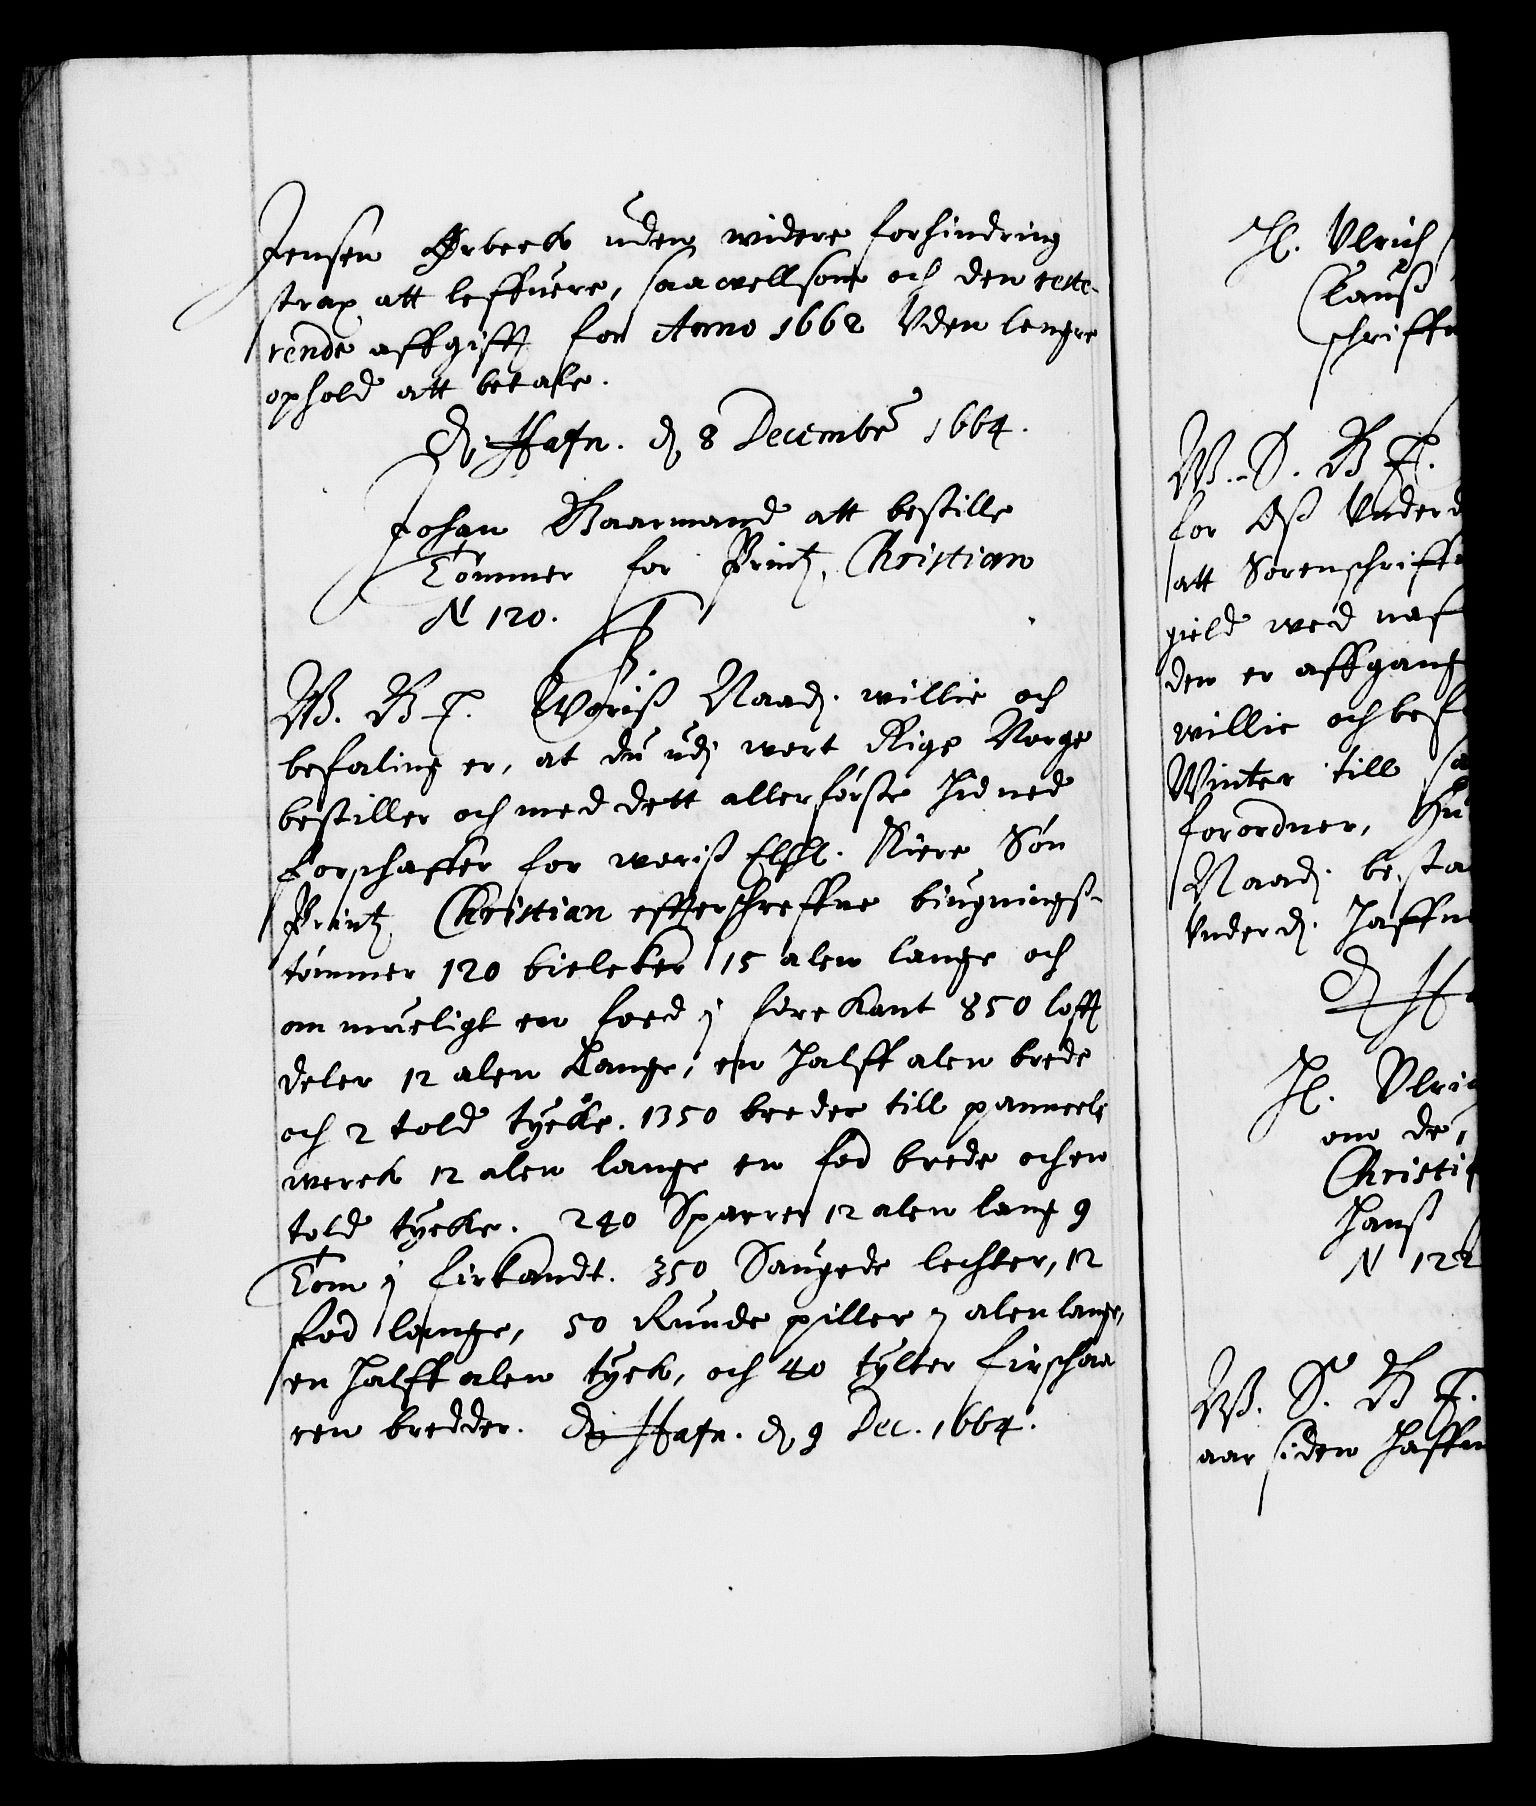 Jensen Ørbeck uden widere forhindring
strax att leffuere, saawellsom och den reste-
rende affgifft for Anno 1662 Vden lengre
ophold att betale.
Hafn. d 8 Decembr 1664.
Johan Gaarmand att bestille
Tømmer for Printz Christian
N 120.
W. G T. Woriß Naad. willie och
befaling er, at du udj wort Rige Norge
bestiller och med dett allerførste hidned
forschaffer for woriß Elschl. Kiere Søn
Printz Christian effterschreffne biugningß-
tømmer 120 bielcker 15 alen lange och
om mueligt en foed j firekant 850 lofft
deler 12 alen Lange, en halff alen brede
och 2 told tycke. 1350 breder till panneels
werck 12 alen lange en fod brede och en
told tycke. 240 Sparrer 12 alen lang 9
Tom j firkandt. 350 Saugede lechter, 12
fod lange, 50 Runde piller 7 alen lange,
en halff alen tyck, och 40 tylter firschaa
ren bredder. Hafn. d 9 Dec. 1664.
H. Vlrich
Clauß
schriffu
W. S. G T.
for Oß Underd
att Sorenschriffu
gield wed naf
den er affgang
willie och bef
Winter till sa
forordner, Hu
Naad. besta
Vnderd. haffu
H. Vlric
om de
Christi
Hanß
N 122
W. S. G T.
aar siden haffu